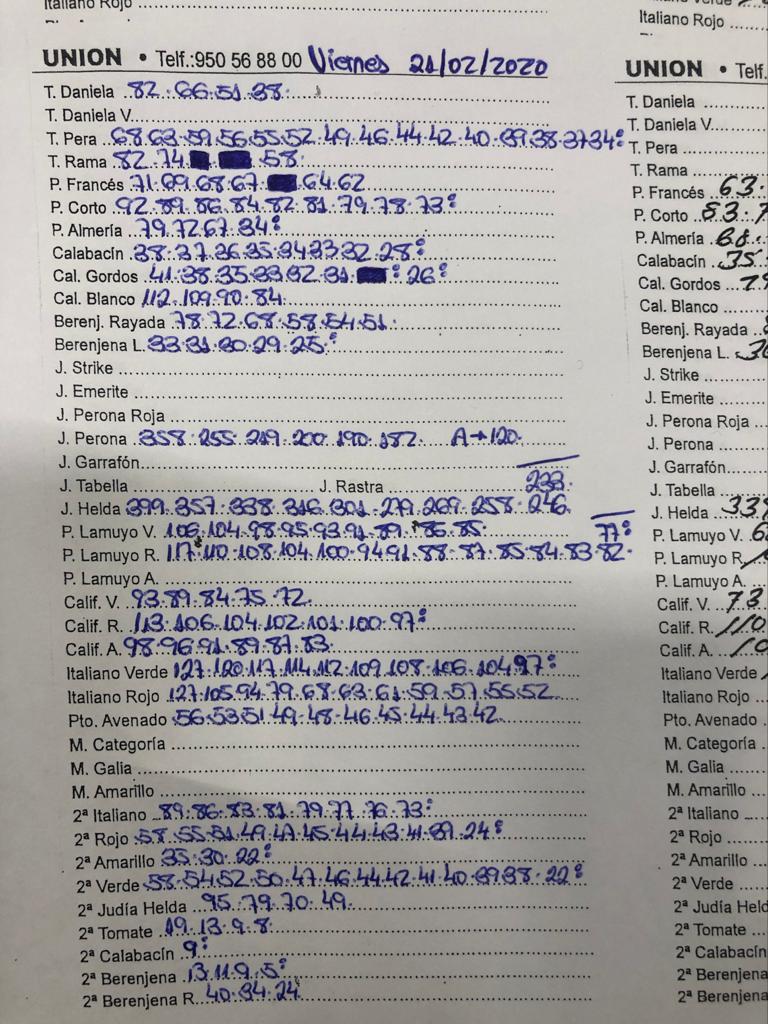 Italiano Rojo
UNION • Telf.:950 56 88 00 Viernes 21/02/2020
T. Daniela 82.66.51.38.
T. Daniela V.
T. Pera 68.63.59.56.55.52.49.46.44.42.40.39.38.37.34:
T. Rama 82.74. . .58.
P. Francés 71.69.68.67. .64.62
P. Corto 92.89.86.84.82.81.79.78.73:
P. Almería 79.72.67.34:
Calabacín 38.37.36.35.34.33.32.28:
Cal. Gordos 41.38.35.33.32.31. : 26:
Cal. Blanco 112.109.90.84.
Berenj. Rayada 78.72.68.58.54.51.
Berenjena L. 33.31.30.29.25:
J. Strike
J. Emerite
J. Perona Roja
J. Perona 358.255.219.200.190.182. A→120.
J. Garrafón
J. Tabella J. Rastra 233.
J. Helda 399.357.338.316.301.279.269.258.246.
P. Lamuyo V. 106.104.98.95.93.91.89.86.85. 77:
P. Lamuyo R. 117.110.108.104.100.94.91.88.87.85.84.83.82.
P. Lamuyo A.
Calif. V. 93.89.84.75.72.
Calif. R. 113.106.104.102.101.100.97:
Calif. A. 98.96.91.89.87.83.
Italiano Verde 127.120.117.114.112.109.108.106.104.97:
Italiano Rojo 127.105.94.79.68.63.61.59.57.55.52.
Pto. Avenado 56.53.51.49.48.46.45.44.43.42.
M. Categoría
M. Galia
M. Amarillo
2ª Italiano 89.86.83.81.79.77.76.73:
2ª Rojo 58.55.51.49.47.45.44.43.41.39.24:
2ª Amarillo 35.30.22:
2ª Verde 58.54.52.50.47.46.44.42.41.40.39.38.22:
2ª Judía Helda 95.79.70.49.
2ª Tomate 19.13.9.8.
2ª Calabacín 9:
2ª Berenjena 13.11.9.5:
2ª Berenjena R. 40.34.24.
Italiano Rojo
UNION • Telf.
T. Daniela
T. Daniela V.
T. Pera
T. Rama
P. Francés 63.
P. Corto 83.
P. Almería 68.
Calabacín 35
Cal. Gordos
Cal. Blanco
Berenj. Rayada
Berenjena L.
J. Strike
J. Emerite
J. Perona Roja
J. Perona
J. Garrafón
J. Tabella
J. Helda 33
P. Lamuyo V.
P. Lamuyo R.
P. Lamuyo A.
Calif. V. 73
Calif. R. 110
Calif. A.
Italiano Verde
Italiano Rojo
Pto. Avenado
M. Categoría
M. Galia
M. Amarillo
2ª Italiano
2ª Rojo
2ª Amarillo
2ª Verde
2ª Judía Held
2ª Tomate
2ª Calabacín
2ª Berenjena
2ª Berenjena